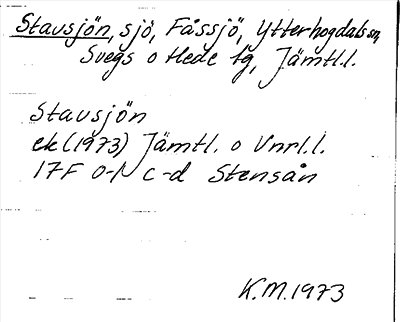 Stavsjön, sjö, Fåssjö, Ytterhogdals sn,
Svegs o Hede tg, Jämtl.l.
Stavsjön
ek (1973) Jämtl. o Vnrl.l.
17F 0-1 c-d Stensån
K.M. 1973